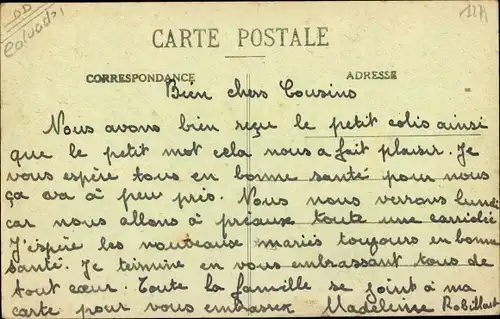 DD
Calvados
127
CARTE POSTALE
CORRESPONDANCE
ADRESSE
Bien chers Cousins
Nous avons bien reçu le petit colis ainsi
que le petit mot cela nous a fait plaisir. Je
vous espère tous en bonne santé pour nous
ça va à peu pris. Nous nous verrons lundi
car nous allons à priaux toute une carriolée
J'espère les nouveaux mariés toujours en bonne
santé. Je termine en vous embrassant tous de
tout cœur. Toute la famille se joint à ma
carte pour vous embrasser Madeleine